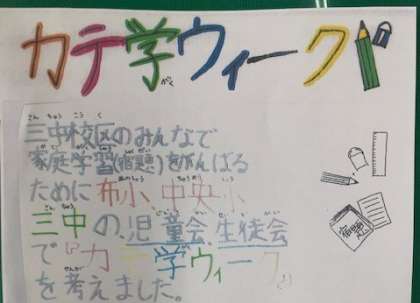 カテ学ウィーク
三中校区のみんなで
家庭学習(宿題)をがんばる
ために布小、中央小
三中の児童会、生徒会
で『カテ学ウィーク』
を考えました。
宿題